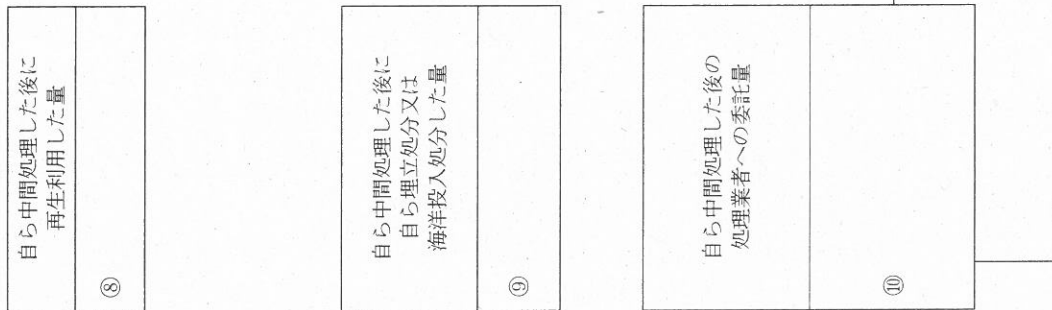 自ら中間処理した後に
再生利用した量
⑧
自ら中間処理した後に
自ら埋立処分又は
海洋投入処分した量
⑨
自ら中間処理した後の
処理業者への委託量
⑩